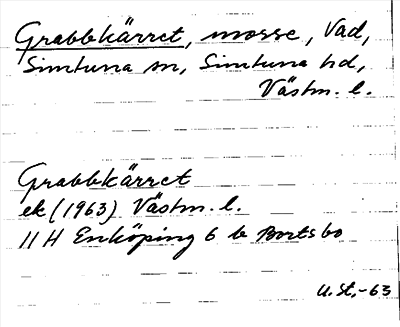 Grabbkärret, mosse, Vad,
Simtuna sn, Simtuna hd,
Västm. l.
Grabbkärret
ek (1963) Västm. l.
11 H Enköping 6 b Bortsbo
U. St. -63